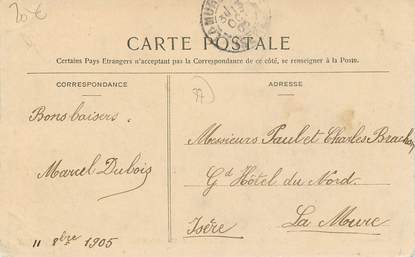 20 €
LA MUR
CARTE POSTALE
Certains Pays Etrangers n'acceptant pas la Correspondance de ce côté, se renseigner à la Poste.
CORRESPONDANCE
Bons baisers.
Marcel Dubois
11 8bre 1905
ADRESSE
Messieurs Paul et Charles
Gd Hôtel du Nord.
La Mure
Isère